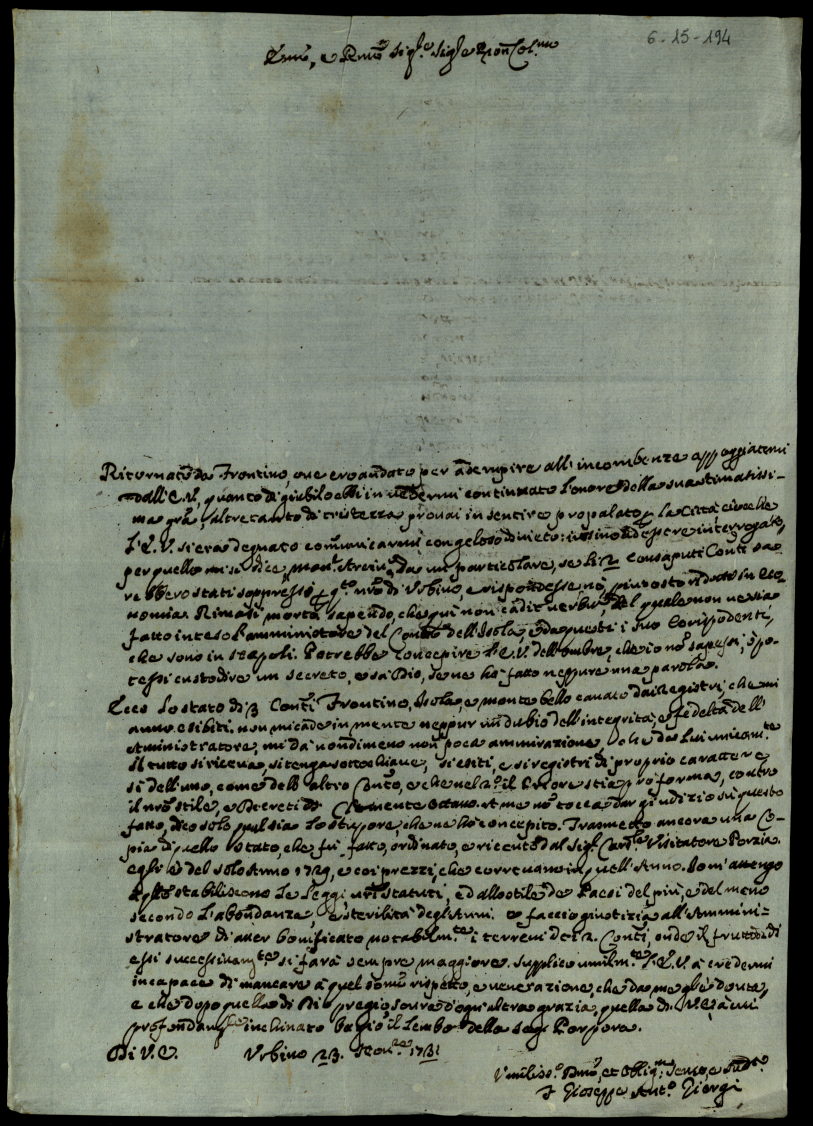 6-15-194
Emo, e Rmo Sig.e Sig.e Pron Col.mo
Ritornato da Frontino, ove ero andato per adempire all'incombenze appoggiatemi
dall'E.V., quanto di giubilo ebbi in vedermi continuato l'onore della sua stimatissi-
ma gra, altrectanto di tristezza provai in sentire propalato p la Città, ciò che
l'E.V. si era degnato comunicarmi con geloso divieto: in sino ad essere interrogato,
per quello mi si dice, da un particolare, se li 2 consaputi Conti sa-
rebbero stati soppressi p q.to nro di Urbino, e rispondesse, nò, piutosto ridurre in eco-
nomia. Rimasi sapendo, che qui non cadit verbu del quale non ne sia
fatto inteso l'amministratore del Conto dell'Isola, e da questi i suoi Corispodenti,
che sono in Napoli. Potrebbe concepire l'E.V. dell'ombre, che io no sapessi, ò po-
tessi custodire un secreto, e sa Dio, se ne ho fatto neppure una parola.
Ecco lo stato di 3 Conti Frontino, Isola, e monte bello cavato dai Registri, che mi
anno esibiti. non mi cade in mente neppur un dubio dell'integrità, e fedeltà dell'
Aministratore, mi dà nondimeno non poca ammirazione, che da lui unicam.te
il tutto si riceva, si tenga sotto chiave, si esiti, e si registri di proprio carattere
sì dell'uno, come dell'altro Conto, e che nel 2.o il Priore stia pro forma, contro
il nro stile, e Decreti di Clemente Ottavo. A me no tocca dar giudizio su questo
fatto, dico solo qual sia lo stupore, che ne ho concepito. Trasmetto ancora una Co-
pia di quello stato, che fu fatto, ordinato, e ricevuto dal Sig.r Can.le Visitatore Porzia.
egli è del solo Anno 1729, e coi prezzi, che correvano in quell'Anno. Io mi attengo
stabiliscono le leggi, nri statuti, ed allo stile de Paesi del più, e del meno
secondo l'abondanze, e sterilità degl'Anni. e faccio giustizia all'Ammini-
stratore di aver bonificato notabelm.te i terreni de i 2. Conti, onde il frutto di
essi successivam.te si farà sempre maggiore. Supplico umilm.te l'E.V. à credermi
incapace di mancare à quel somo rispetto, e venerazione, che da me gl'è dovuta,
e che dopo quella di Dio pregio sovra d'ogn'altra grazia quella di V.E. à cui
profondam.te inchinato bagio il lembo della Sag. Porpora.
Di V.E. Urbino 23. 1731
Umiliss.o Dmo, et Obligmo Servo, e Sudto
F Gioseppe Ant.o Giorgi